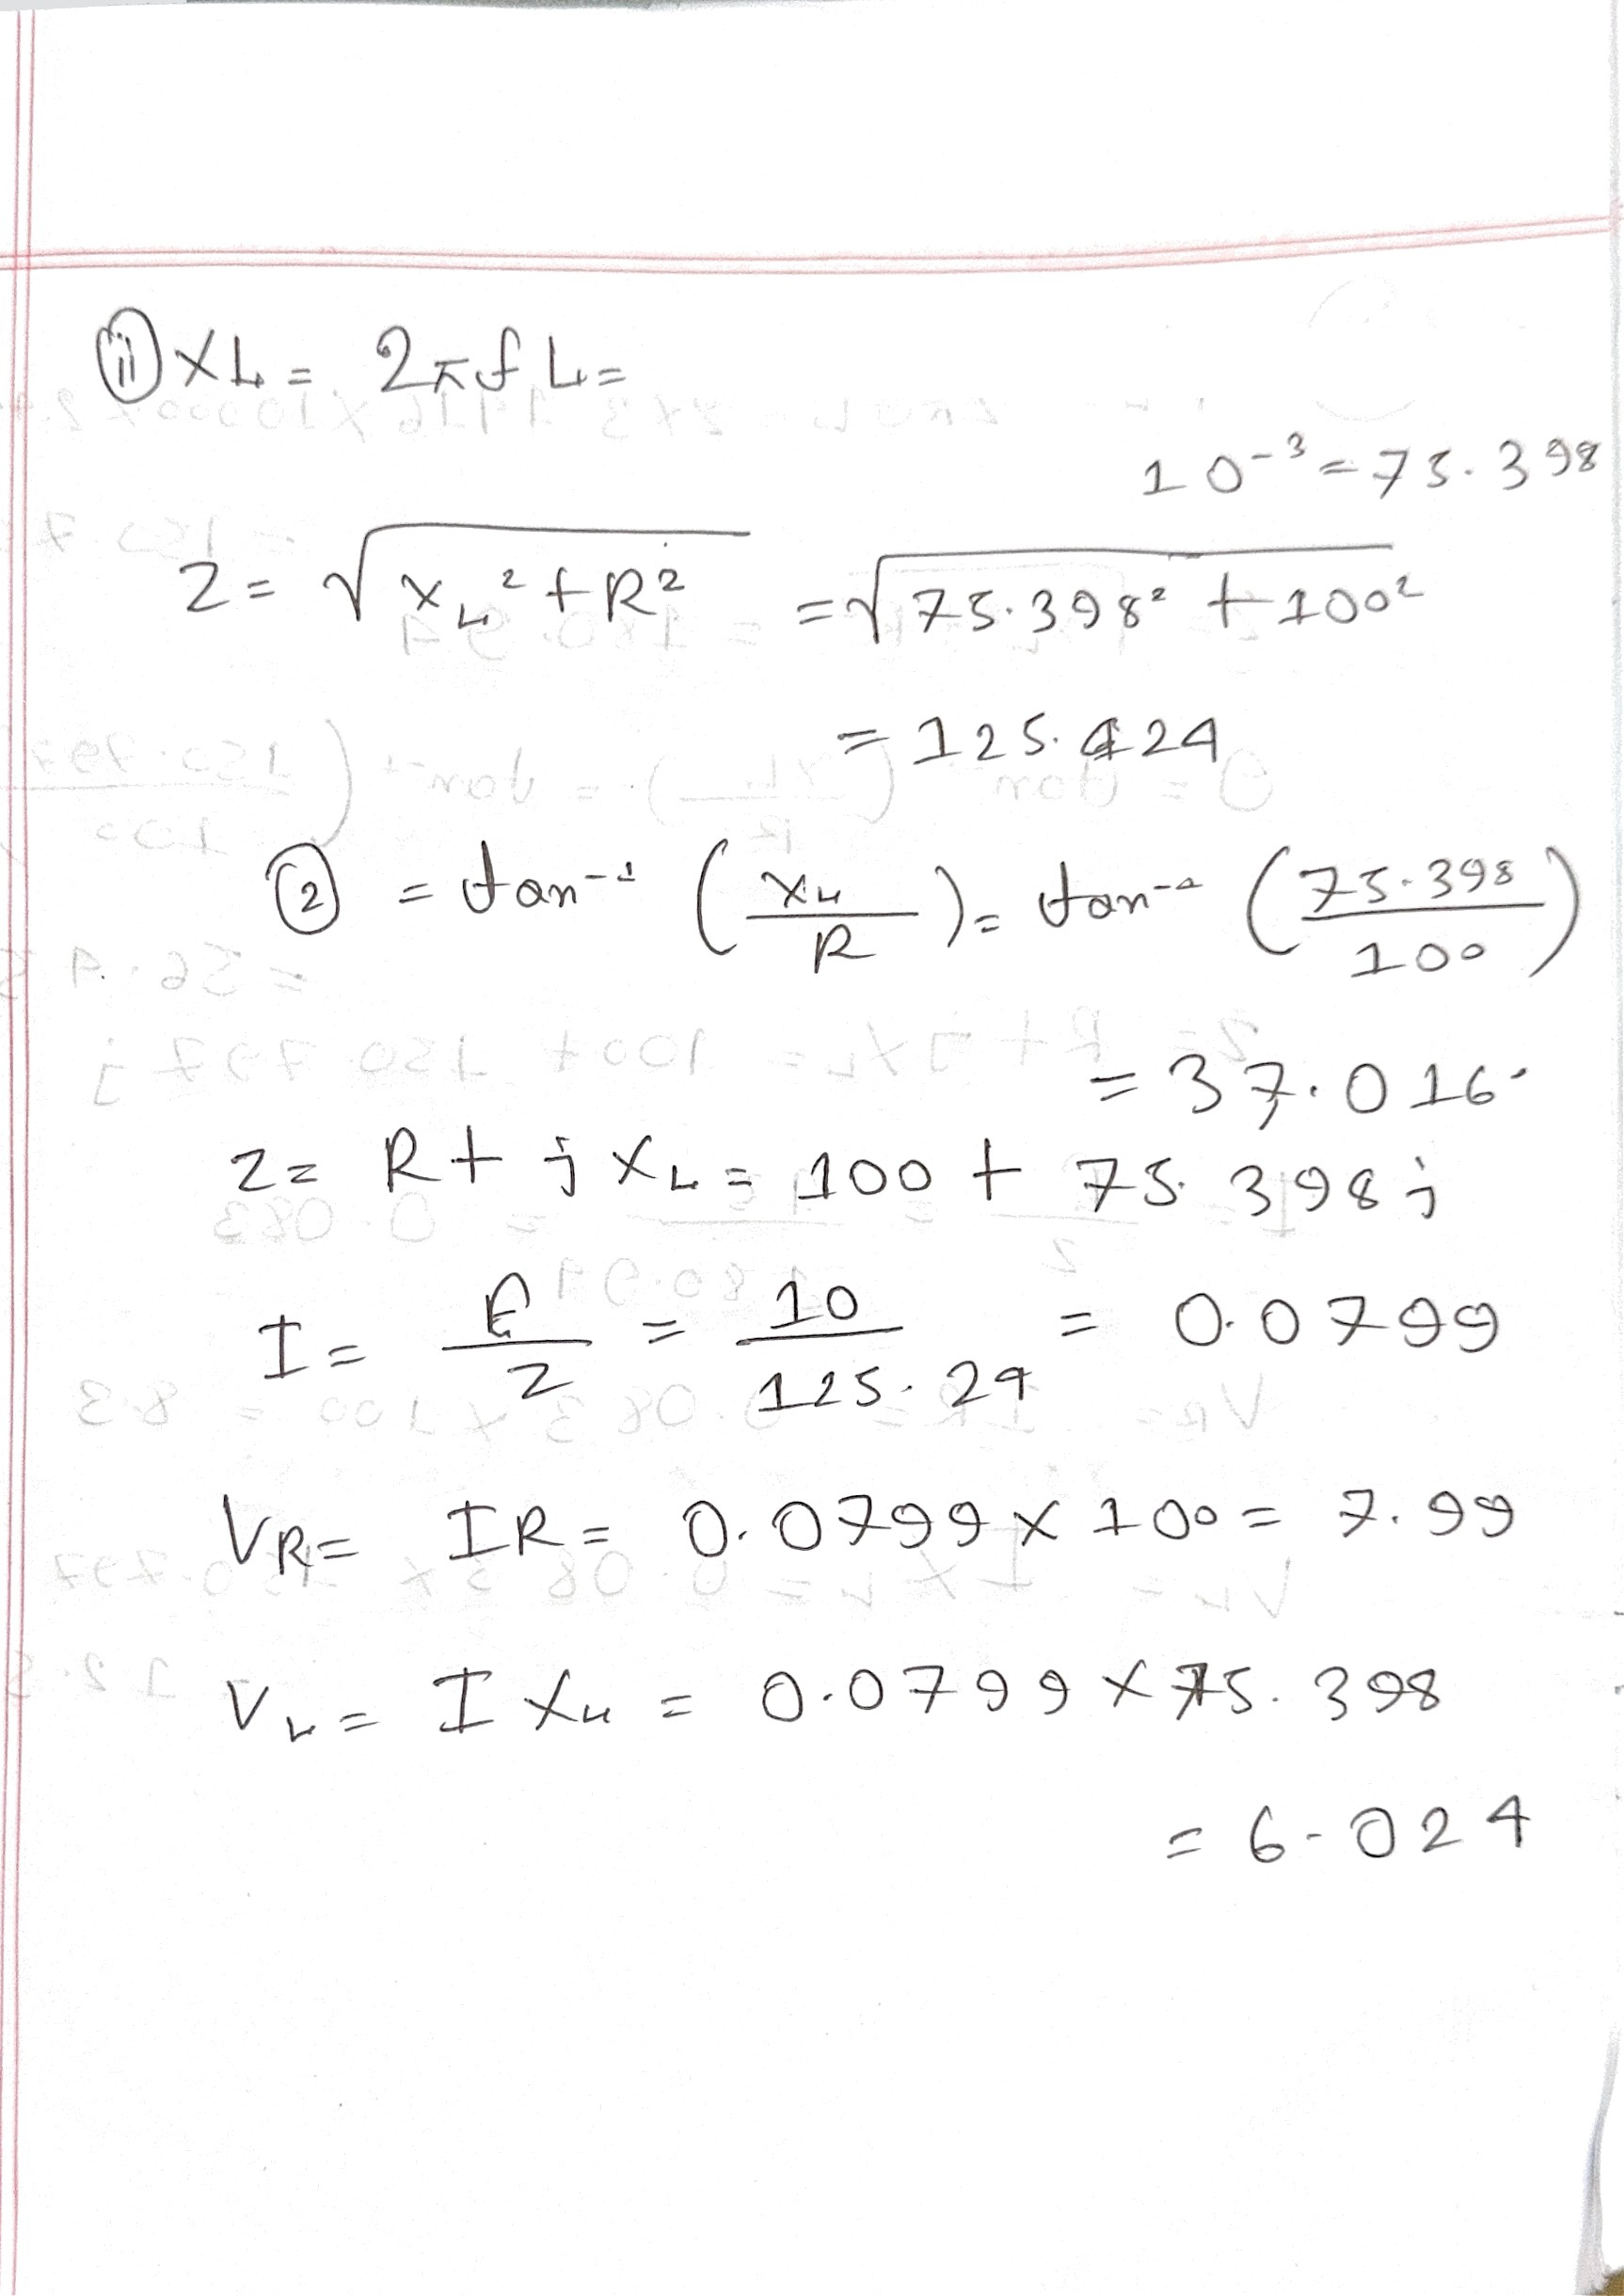 (ii) XL = 2πfL =
10⁻³ = 75.398
Z = √(X_L² + R²) = √(75.398² + 100²)
= 125.424
(2) = tan⁻¹ (X_L / R) = tan⁻¹ (75.398 / 100)
= 37.016°
Z = R + jX_L = 100 + 75.398j
I = E / Z = 10 / 125.24 = 0.0799
VR = IR = 0.0799 × 100 = 7.99
V_L = I X_L = 0.0799 × 75.398
= 6.024